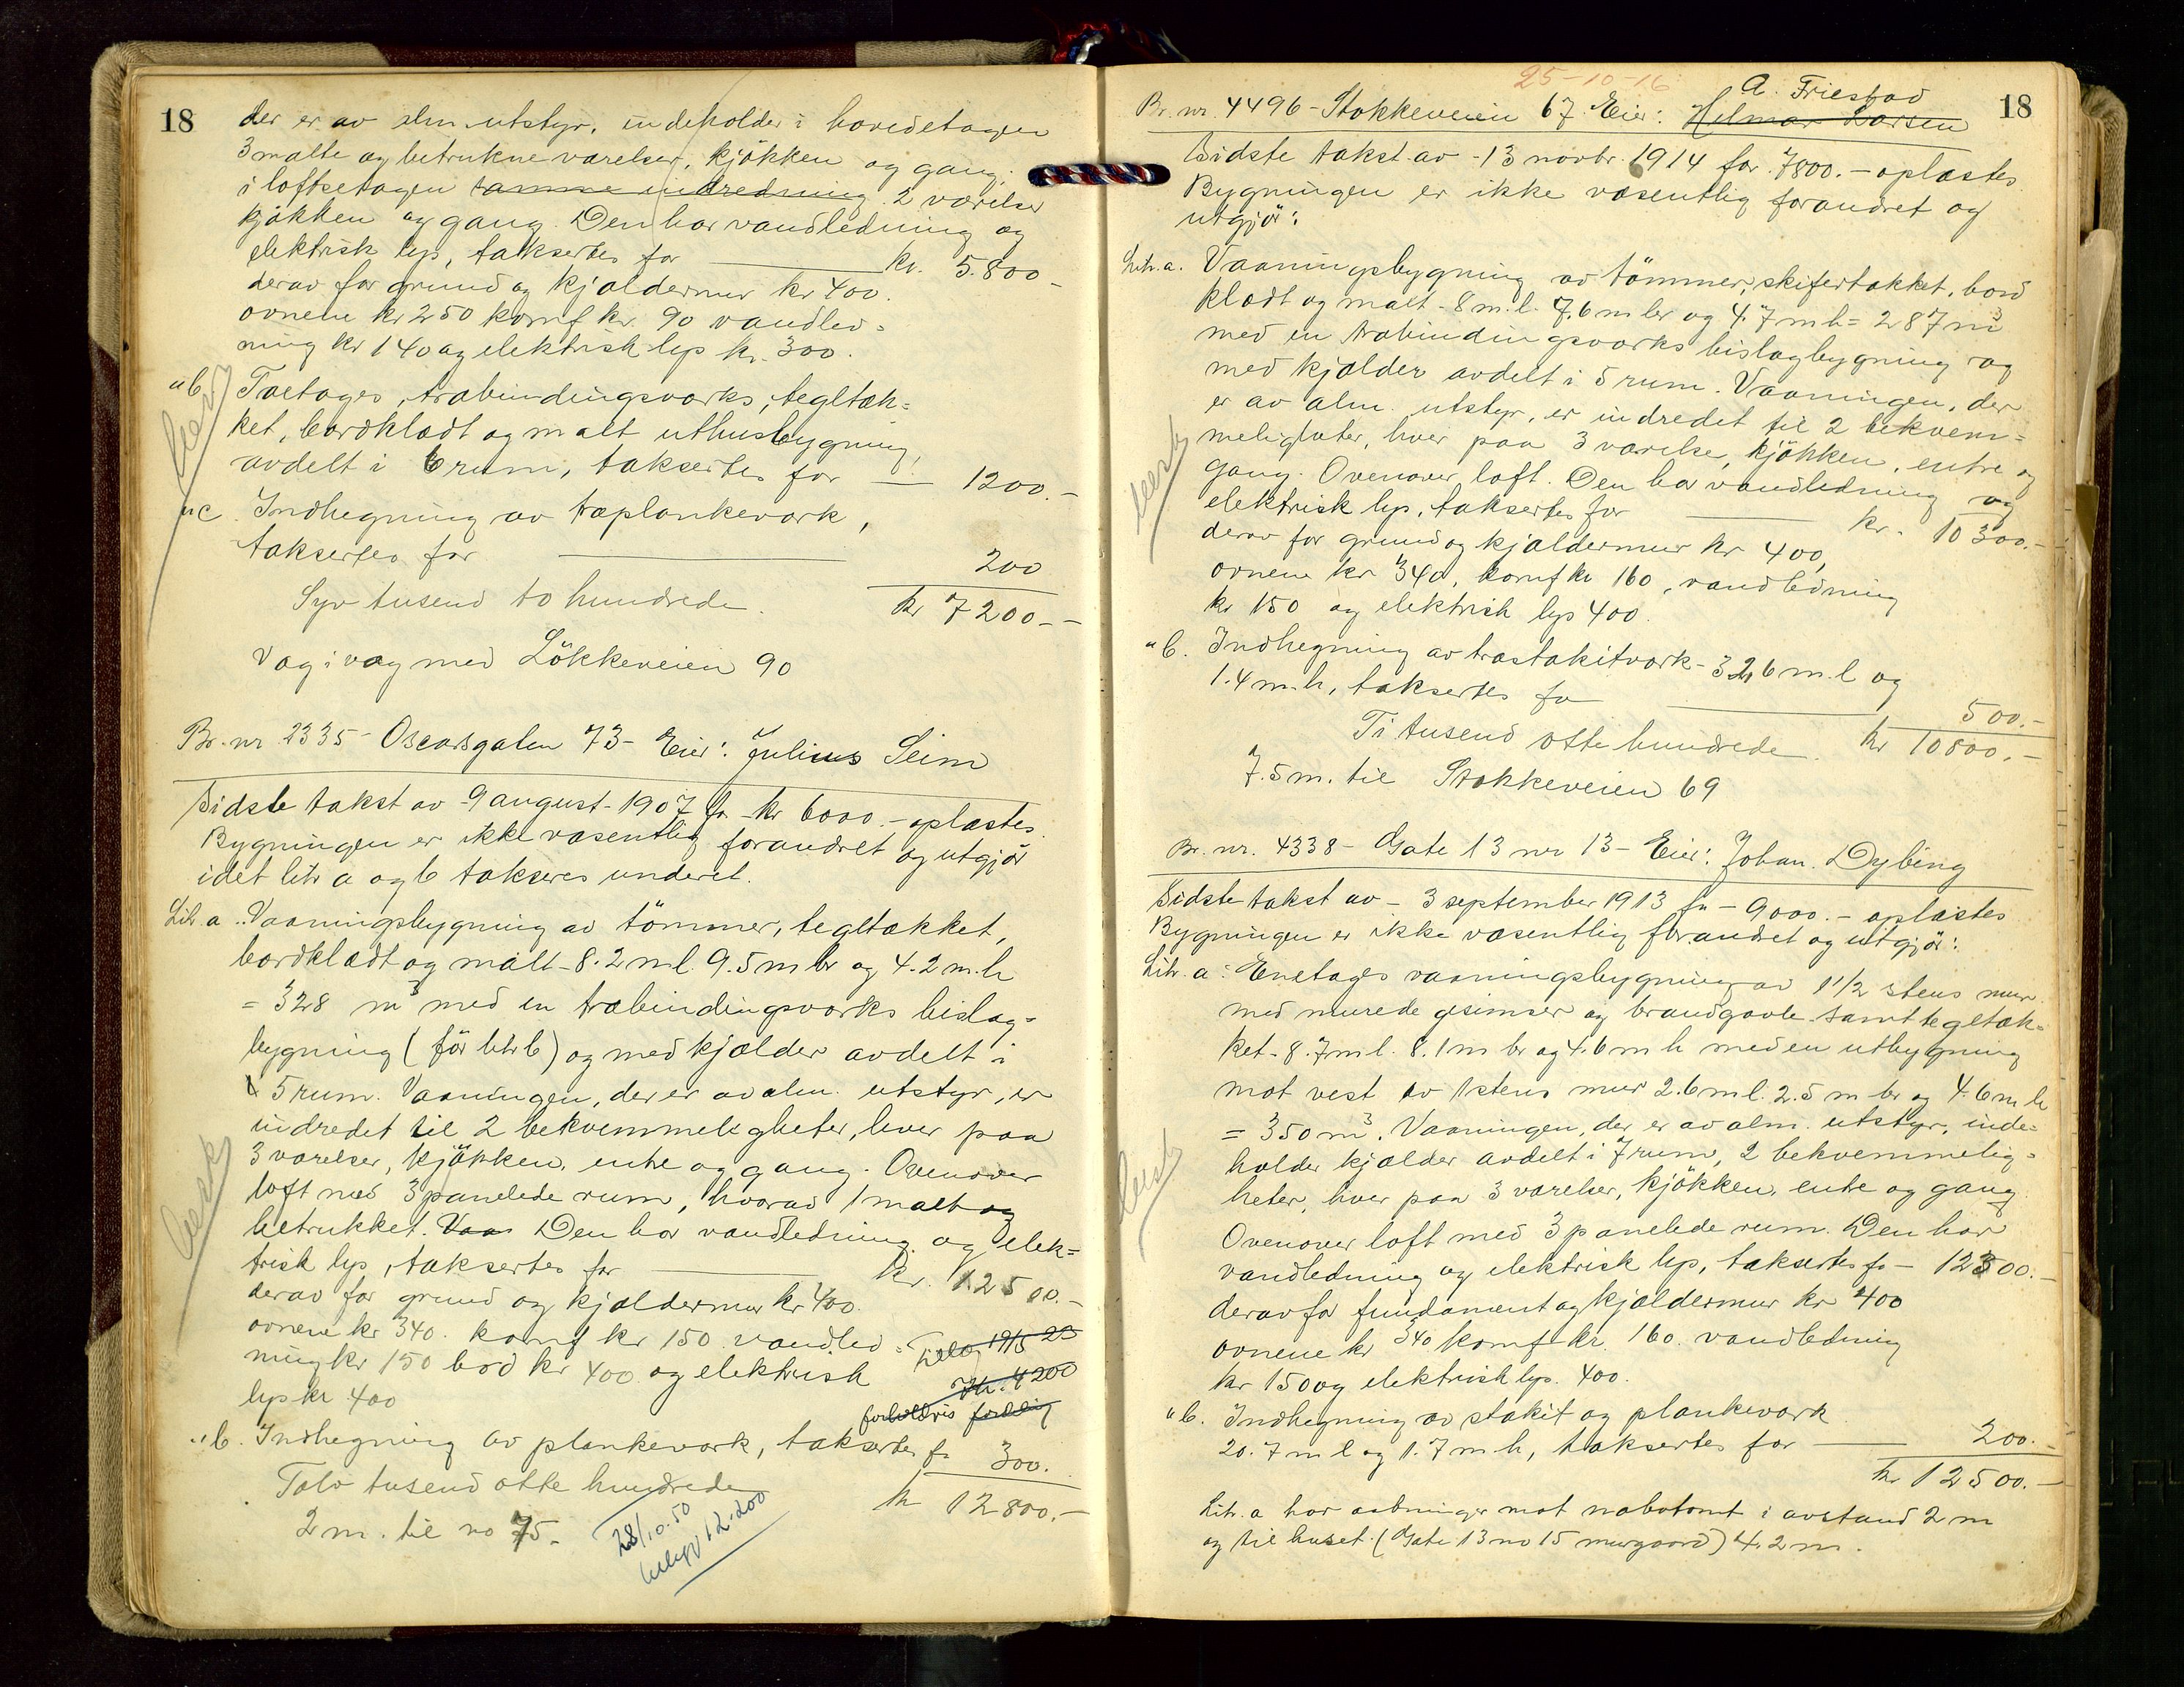 18
der er av alm utstyr, indeholder i hovedetagen
3 malte og betrukne værelser, kjøkken og gang;
i loftsetagen samme indredning 2 værelser
kjøkken og gang. Den har vandledning og
elektrisk lys, taksertes for kr. 5.800 -
derav for grund og kjældermur kr 400.
ovnene kr 250 komf kr. 90 vandled =
ning kr 140 og elektrisk lys kr. 300.
"b Toetages, træbindingsværks, tegltæk=
ket, bordklædt og malt uthusbygning,
avdelt i 6 rum, taksertes for — 1200.-
"c. Indhegning av træplankeværk,
taksertes for 200
Syv tusend to hundrede. kr 7200.-
Væg i væg med Løkkeveien 90
Br. nr 2335 - Oscarsgaten 73 - Eier: Julius Seim
Sidste takst av - 9 august - 1907 for kr 6000.- oplæstes.
Bygningen er ikke væsentlig forandret og utgjør
idet litr a og b takseres underet.
Litr. a. Vaaningsbygning av tømmer, tegltækket,
bordklædt og malt - 8.2 m l. 9.5 m br og 4.2 m. h
= 328 m³ med en træbindingsværks bislag=
bygning (før litr b) og med kjælder avdelt i
5 rum. Vaaningen, der er av alm. utstyr, er
indredet til 2 bekvemmeligheter, hver paa
3 værelser, kjøkken, entre og gang. Ovenover
loft med 3 panelede rum, hvorav 1 malt og
betrukket. Vaa Den har vandledning og elek=
trisk lys, taksertes for kr. 12500.-
derav for grund og kjældermur kr 400.
ovnene kr 340. komf kr 150 vandled =
ning kr 150 bod kr 400 og elektrisk
lys kr 400
4200
"b. Indhegning av plankeværk, taksertes for 300.
Tolv tusend otte hundrede kr 12800.-
2 m. til no 75.
28/10.50
12.200
25-10-16
A. Friestad
18
Br. nr. 4496 - Stokkeveien 67. Eier: Helmar Larsen
Sidste takst av - 13 novbr. 1914 for 7800.- oplæstes.
Bygningen er ikke væsentlig forandret og
utgjør:
Litr. a. Vaaningsbygning av tømmer, skifertækket, bord
klædt og malt - 8 m. l. 7.6 m br og 4.7 m h = 287 m³
med en træbindingsværks bislagbygning og
med kjælder avdelt i 5 rum. Vaaningen, der
er av alm. utstyr, er indredet til 2 bekvem=
meligheter, hver paa 3 værelse, kjøkken, entre og
gang. Ovenover loft. Den har vandledning og
elektrisk lys, taksertes for kr. 10300.-
derav for grund og kjældermur kr 400,
ovnene kr 340, komf kr 160, vandledning
kr 150 og elektrisk lys 400.
"b. Indhegning av træstakitværk - 32,6 m. l og
1.4 m. h, taksertes for 500.-
Ti tusend otte hundrede. kr 10800.-
7.5 m. til Stokkeveien 69
Br. nr. 4338 - Gate 13 nr 13 - Eier: Johan. Dybing
Sidste takst av - 3 september 1913 for - 9000.- oplæstes
Bygningen er ikke væsentlig forandret og utgjør:
Litr. a: Enetages vaaningsbygning av 1 1/2 stens mur
med murede gesimser og brandgavle samt tegltæk=
ket - 8.7 m l. 8.1 m br og 4.6 m h med en utbygning
mot vest av 1 stens mur 2.6 m l. 2.5 m br og 4.6 m h
= 350 m³. Vaaningen, der er av alm. utstyr, inde=
holder kjælder avdelt i 7 rum, 2 bekvemmelig=
heter, hver paa 3 værelser, kjøkken, entre og gang
Ovenover loft med 3 panelede rum. Den har
vandledning og elektrisk lys, taksertes for - 12300.-
derav for fundament og kjældermur kr 400
ovnene kr 340 komf kr. 160. vandledning
kr 150 og elektrisk lys. 400.
"b. Indhegning av stakit og plankeværk
20.7 m l og 1.7 m h, taksertes for — 200.-
kr 12500.-
Litr. a har aabninger mot nabotomt i avstand 2 m
og til huset (Gate 13 no 15 murgaard) 4.2 m.